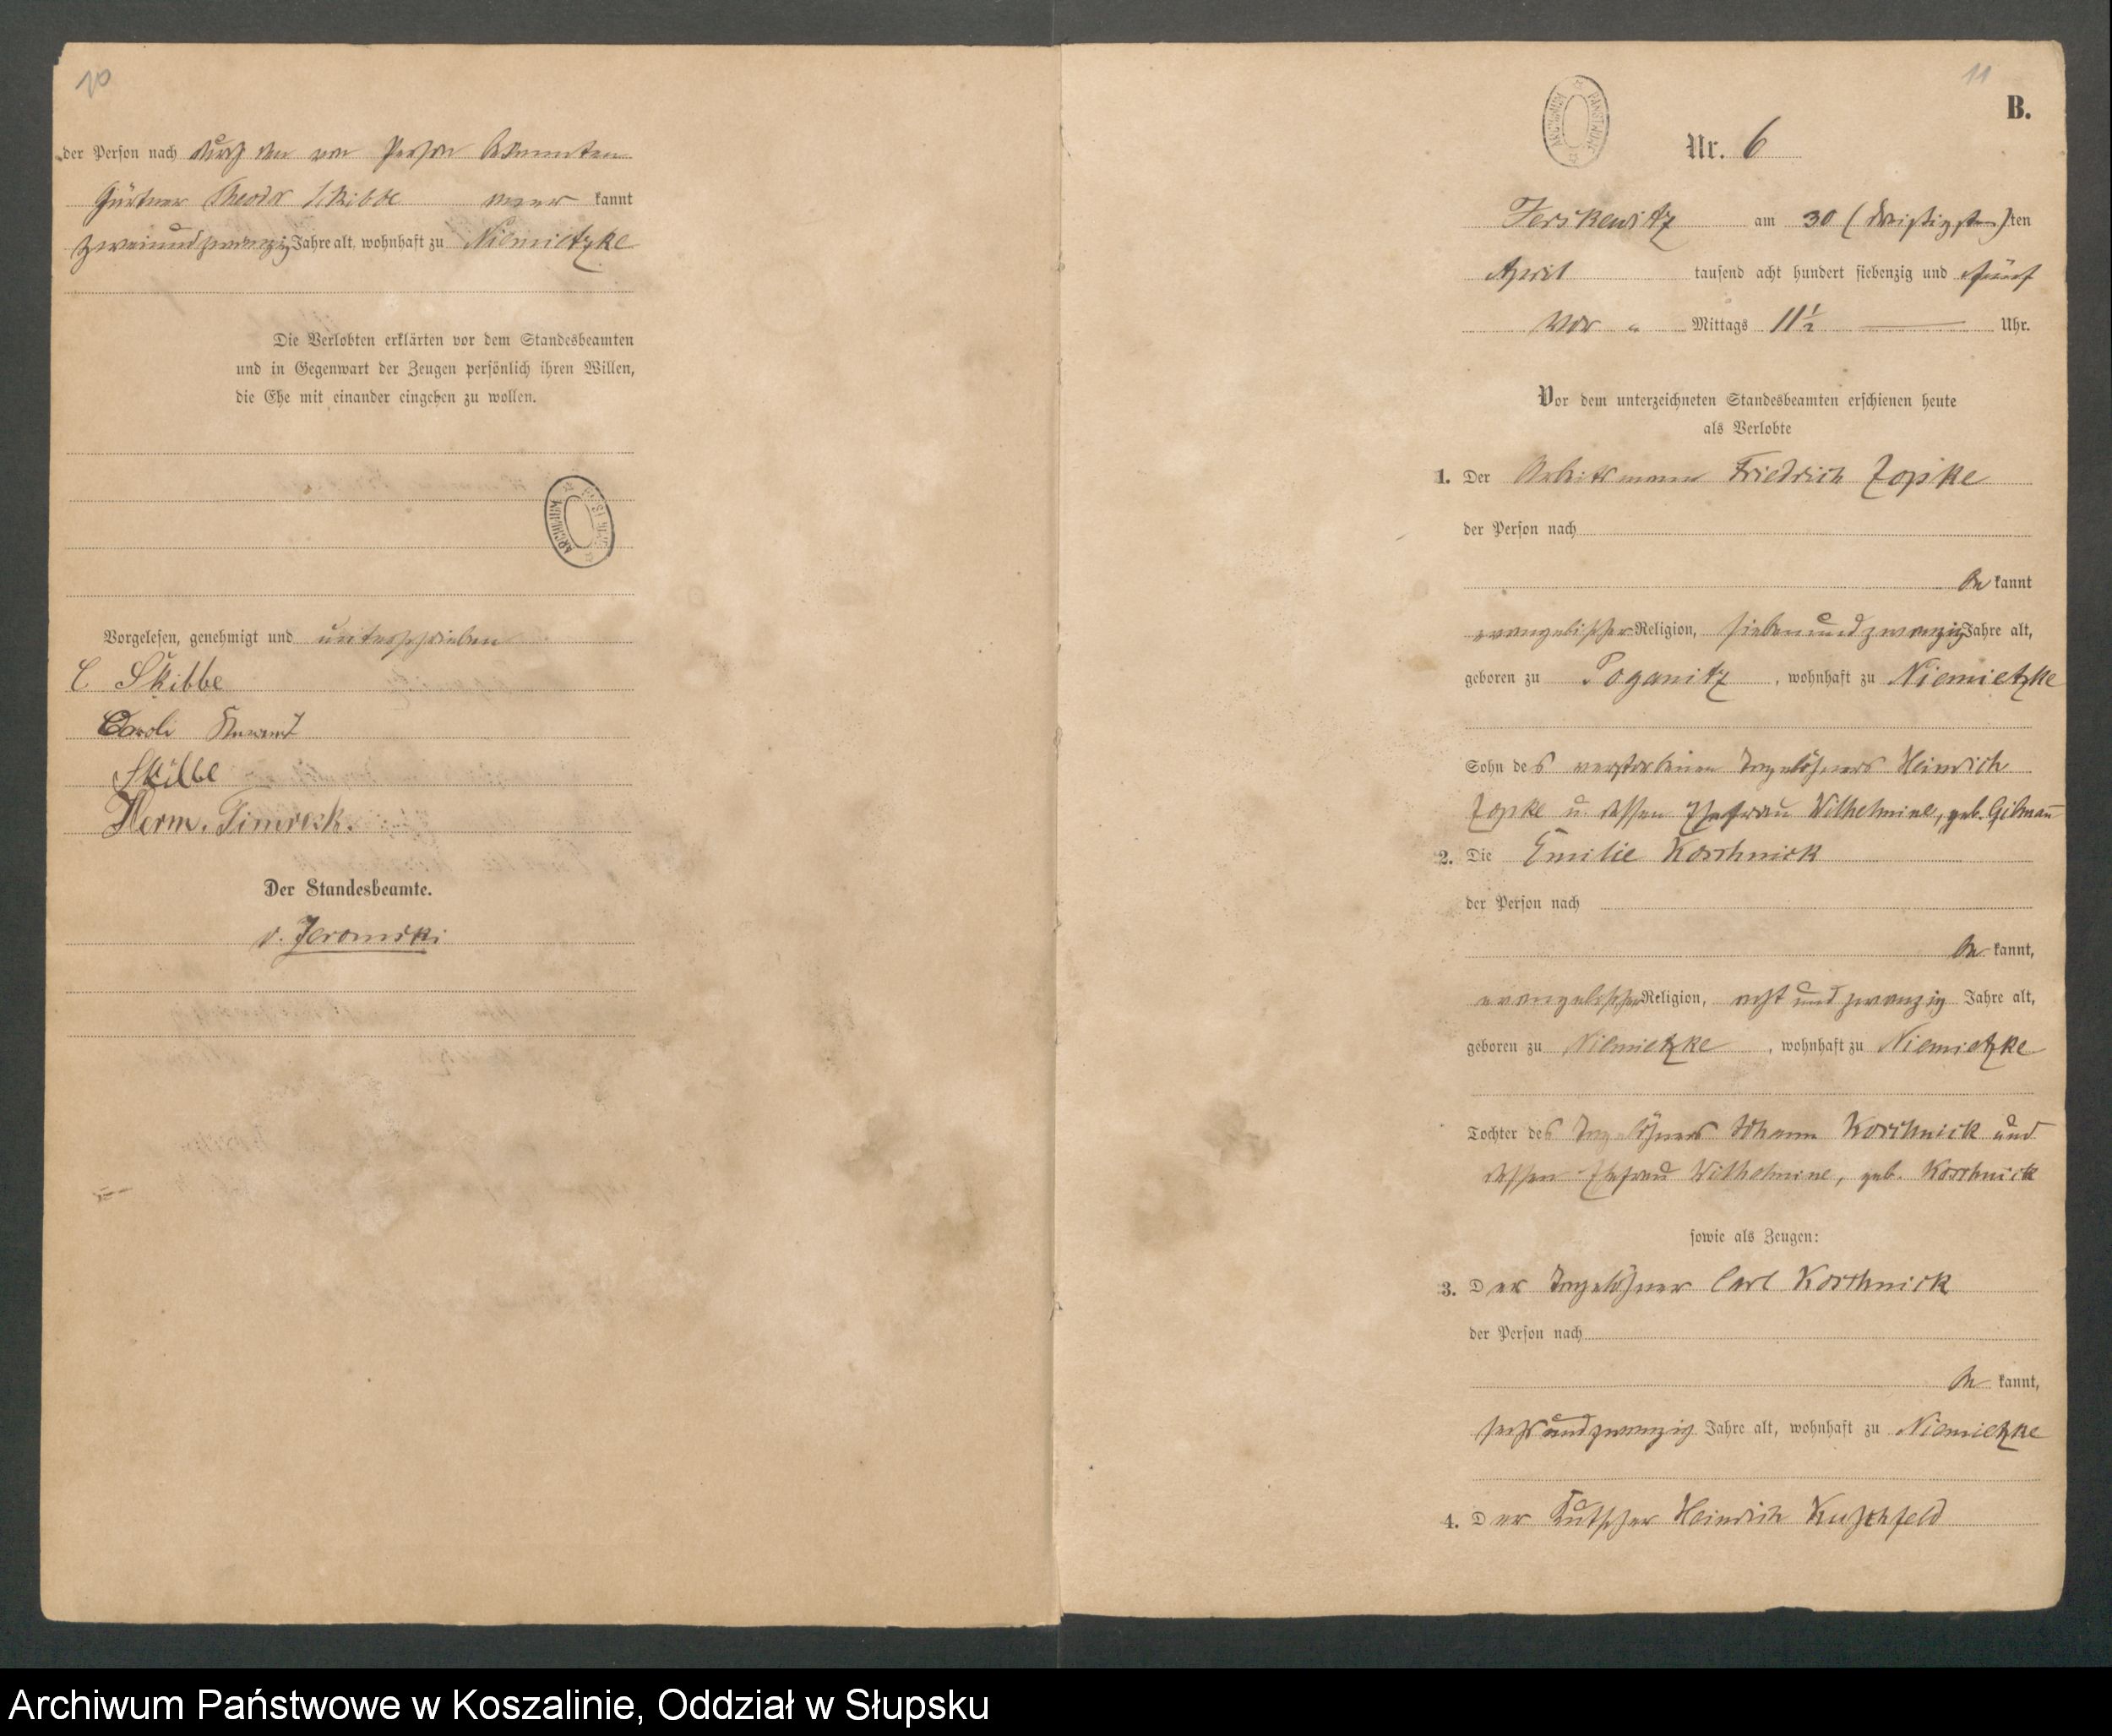 10
der Person nach durch den von Person bekannten
Gärtner Theodor Skibbe aner kannt
zweiundzwanzig Jahre alt, wohnhaft zu Niemietzke
Die Verlobten erklärten vor dem Standesbeamten
und in Gegenwart der Zeugen persönlich ihren Willen,
die Ehe mit einander eingehen zu wollen.
ARCHIWUM PAŃSTWOWE
Vorgelesen, genehmigt und unterschrieben
C Skibbe
Skibbe
Herm.
Der Standesbeamte.
v. Jeromski
11
B.
ARCHIWUM PAŃSTWOWE
Nr. 6
Jerskewitz am 30 (dreißigsten)ten
April tausend acht hundert siebenzig und fünf
Vor " Mittags 11 ½ Uhr.
Vor dem unterzeichneten Standesbeamten erschienen heute
als Verlobte
1. Der Arbeitsmann Friedrich Zopke
der Person nach
be kannt
evangelischer Religion, siebenundzwanzig Jahre alt,
geboren zu Poganitz, wohnhaft zu Niemietzke
Sohn des verstorbenen Tagelöhners Heinrich
Zopke u. dessen Ehefrau Wilhelmine, geb.
2. Die Emilie Koschnick
der Person nach
be kannt,
evangelischer Religion, acht und zwanzig Jahre alt,
geboren zu Niemietzke, wohnhaft zu Niemietzke
Tochter des Tagelöhners Johann Koschnick und
dessen Ehefrau Wilhelmine, geb. Koschnick
sowie als Zeugen:
3. Der Tagelöhner Carl Koschnick
der Person nach
be kannt,
sechsundzwanzig Jahre alt, wohnhaft zu Niemietzke
4. Der Kutscher Heinrich Kuschfeld
Archiwum Państwowe w Koszalinie, Oddział w Słupsku